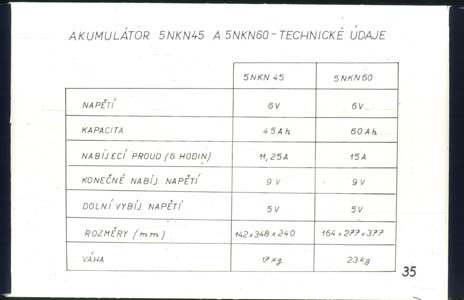 AKUMULÁTOR 5NKN45 A 5NKN60 - TECHNICKÉ ÚDAJE
5NKN 45 5NKN60
NAPĚTÍ 6V 6V
KAPACITA 45Ah 60Ah
NABÍJECÍ PROUD (6 HODIN) 11,25A 15A
KONEČNÉ NABÍJ. NAPĚTÍ 9V 9V
DOLNÍ VYBÍJ. NAPĚTÍ 5V 5V
ROZMĚRY (mm) 142x348x240 164x277x377
VÁHA 17kg 23kg
35